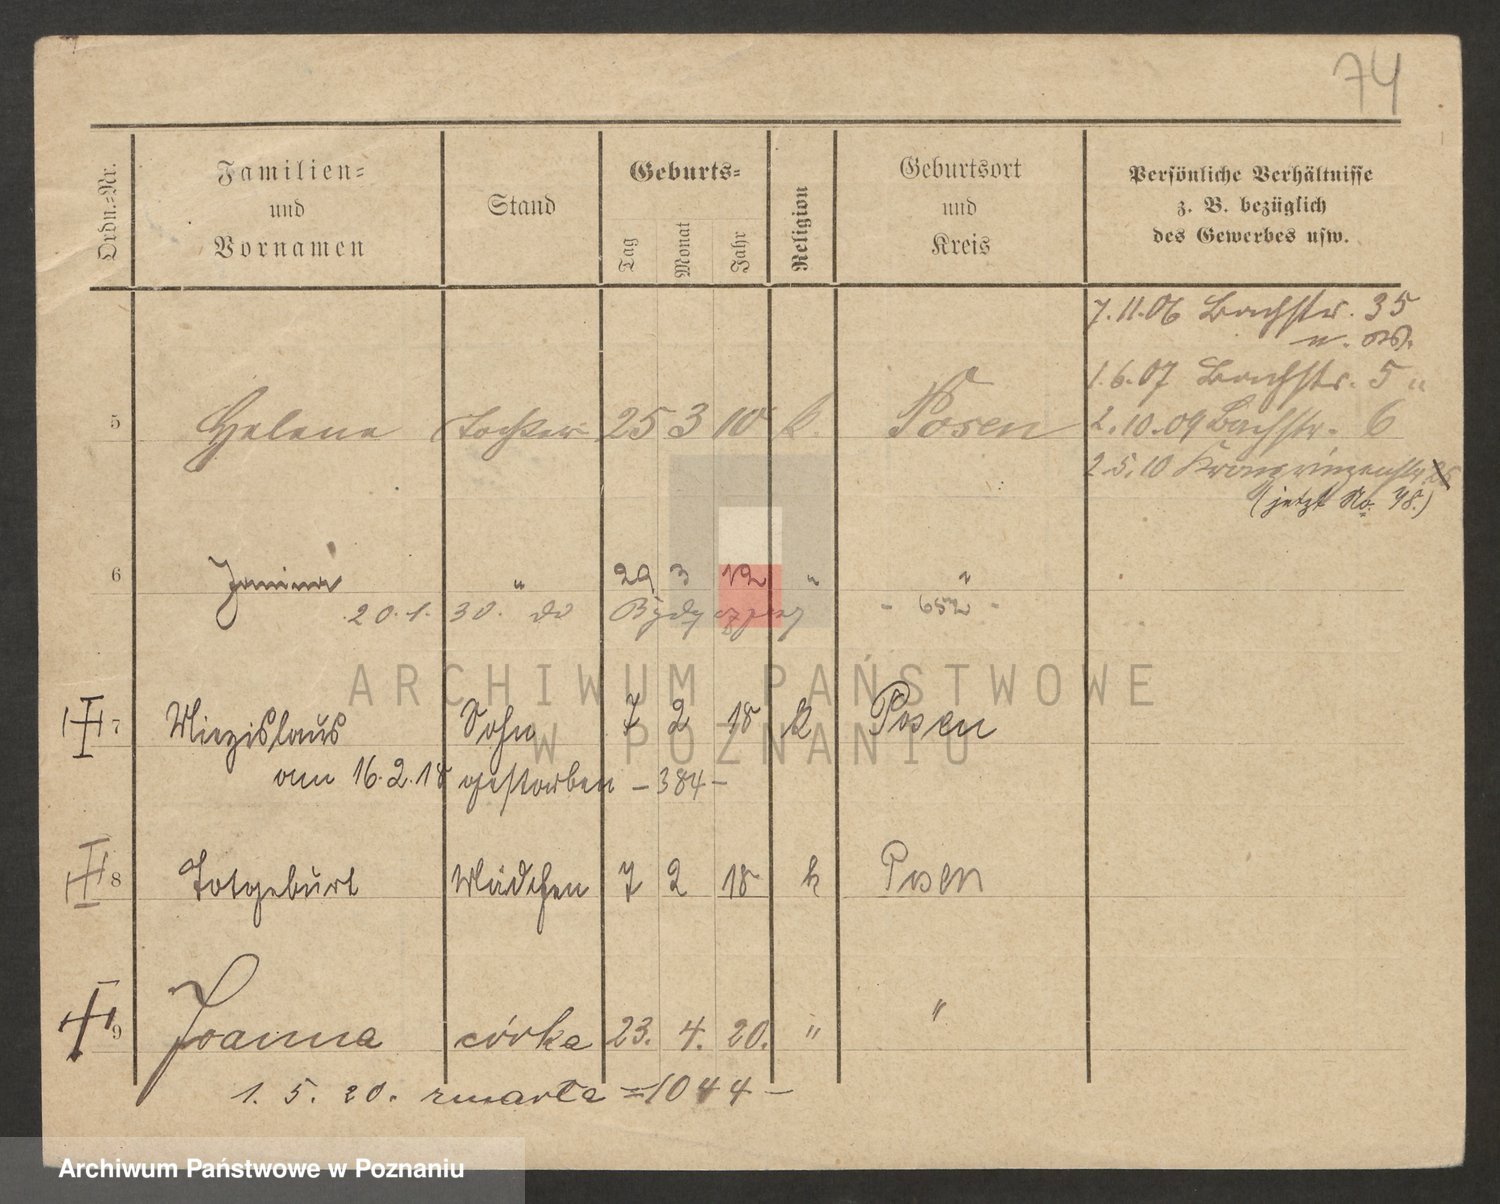 74
Ordn.-Nr.
Familien-
und
Vornamen
Stand
Geburts-
Tag
Monat
Jahr
Religion
Geburtsort
und
Kreis
Persönliche Verhältnisse
z. B. bezüglich
des Gewerbes usw.
7.11.06 Bachstr. 35
1.6.07 Bachstr. 5 "
5 Helene Tochter 25 3 10 k. Posen 2.10.09 Bachstr. 6
2.5.10 Kronprinzenstr.
(jetzt No. 48.)
6 Janina " 29 3 12 " "
20.1.30. do Bydgoszczy - 652 -
7 Miezislaus Sohn 7 2 18 k Posen
am 16.2.18 gestorben - 384 -
8 Totgeburt Mädchen 7 2 18 k Posen
9 Joanna córka 23. 4. 20. " "
1. 5. 20. zmarła = 1044 -
ARCHIWUM PAŃSTWOWE
W POZNANIU
Archiwum Państwowe w Poznaniu